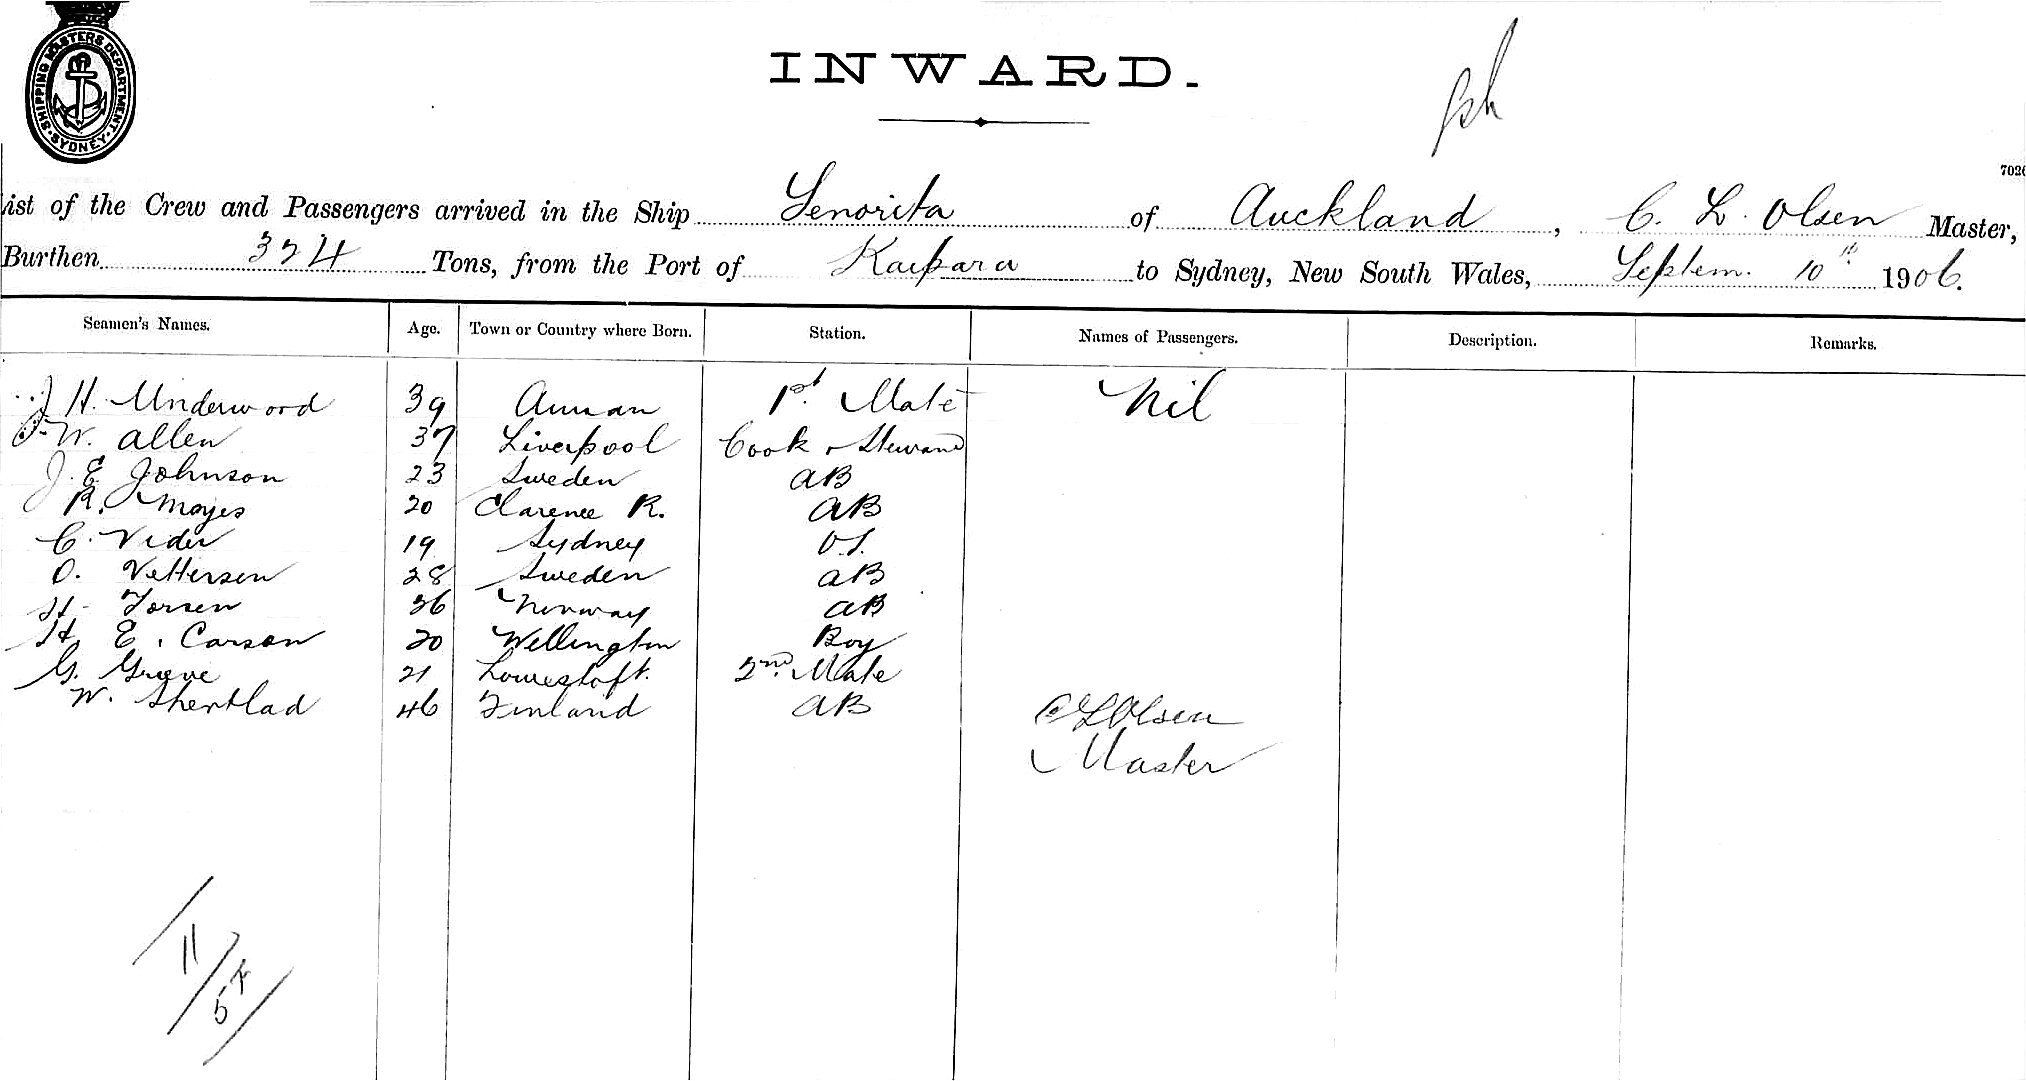 SHIPPING MASTERS DEPARTMENT. SYDNEY
INWARD.
7026
ist of the Crew and Passengers arrived in the Ship Senorita of Auckland, C. L. Olsen Master,
Burthen 324 Tons, from the Port of Kaipara to Sydney, New South Wales, Septem. 10th 1906.
Seamen's Names. Age. Town or Country where Born. Station. Names of Passengers. Description. Remarks.
J H. Underwood 39 1st. Mate Nil
W. Allen 37 Liverpool Cook & Steward
J. E. Johnson 23 Sweden AB
R. Moyes 20 Clarence R. AB
C. Vider 19 Sydney O.S.
O. Vettersen 28 Sweden AB
H. Torsen 36 Norway AB
H. E. Carson 20 Wellington Boy
G. Greve 21 Lowestoft. 2nd. Mate
W. Shertlad 46 Finland AB
C L Olsen
Master
11